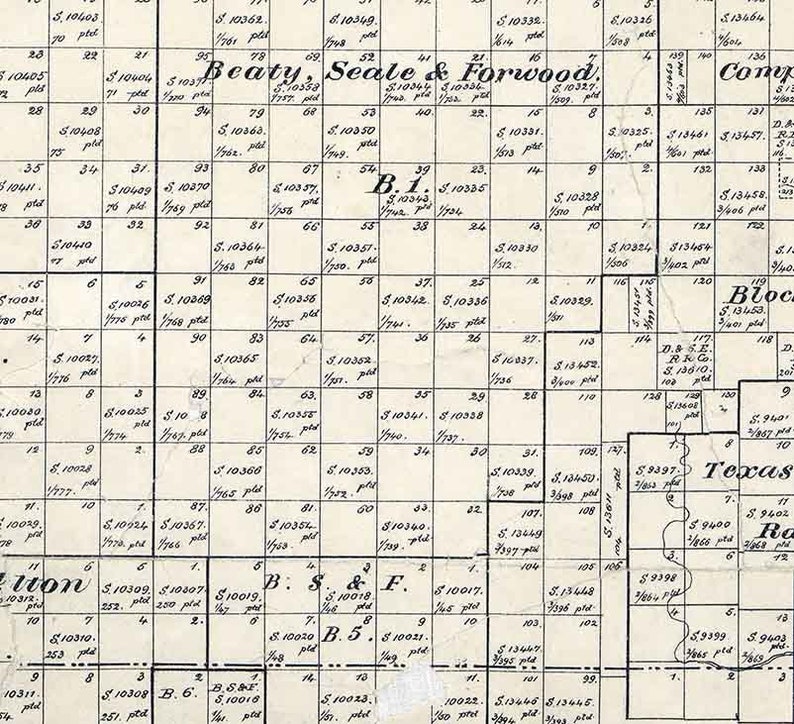 S.10403. S.10362. S.10349. S.10332. S.10326 S.13464
70 ptd 1/761 ptd 1/748 1/614 ptd 1/508 ptd 4/604
23 22 21 95 78 69. 52 41 21. 16 7 4 139 140 136
Beaty, Seale & Forwood. Comp
S.10405 S.10404 S.10358 S.10344 S.10334 S.10327.
71 ptd 1/770 ptd 1/757. ptd 1/743. ptd 1/733. ptd 1/509. ptd
28 29 30 94 79 68 53 40 22. 15 8 3. 135 131
S.10408 S.10363. S.10350 S.10331. S.10325. S.13461 S.13457.
75 ptd 1/762. 1/749. 1/513 ptd 1/507. 4/601 ptd
35 34 31. 93 80 67 54 39 23. 14 9 2. 132 133
B.1.
S.10411. S.10409 S.10370 S.10357. S.10343. S.10335 S.10328 S.13458.
ptd 76 ptd. 1/769 ptd 1/756 1/742. ptd 1/734 1/510 ptd 3/406 ptd
36 33 32 92 81 66 55 38 24 13. 10 1. 121 122
S.10410 S.10364. S.10351. S.10330 S.10324 S.13454
77 ptd 1/763 ptd 1/750. ptd 1/512. 1/506 3/402 ptd
15 6 5 91 82 65 56 37. 25 12 11 116 115 120 119
Block
S.10031. S.10026 S.10369 S.10356 S.10342. S.10336 S.10329. S.13451 S.13453.
1/780 ptd 1/775 ptd 1/768 ptd 1/755 1/741. 1/735 ptd 1/511 3/399 ptd. 3/401 ptd
14. 7 4 90 83 64. 57. 36 26 27. 113 114 117. 118
D. & S.E.
R.R.Co.
S.10027. S.10365 S.10352 S.10337. S.13452. S.13610.
1/776 ptd 1/764 ptd 1/751. ptd 1/736 3/400 ptd 103 ptd
13 8 3 89. 84 63. 58 35 29 28 110 128 129 130 9
S.10030 S.10025 S.10355 S.10341. S.10338 S.13608 S.9401
1/774 1/767. ptd 1/754. ptd 1/740. 1/737. 101 2/867 ptd
12 9 2. 88 85 62 59 34 30 31. 109. 127. 1. 8 10
Texas
S.10028 S.10366 S.10353. S.10339. S.13450. S.9397.
1/777. ptd 1/765 ptd 1/752. ptd 1/738 ptd 3/398 ptd 2/863 ptd
11. 10 1. 87. 86 81 60 33. 32 107. 108 S.13611 ptd 104 2 7. 11
S.10029. S.10367. S.10354. S.10340. S.13449 S.9400 S.9402
ptd 1/773. ptd 1/766 1/753. 1/739. ptd 3/397 ptd 2/866 ptd 2/868 ptd
11 6 5 1. 5 4 3 2 1. 104 105 106 3. 6 12
B. S. & F.
S.10312. S.10309. S.10307. S.10019. S.10018. S.10017. S.13448 S.9398
ptd 252. ptd 250 ptd 1/47 ptd 1/46 ptd 1/45 ptd 3/396 ptd. 2/864 ptd
10 7 4 2. 6 7. 8 9 10 103. 102 4 5. 13
B.5.
S.10310. S.10020 S.10021. S.13447. S.9399 S.9403
253 ptd 1/48 1/49. ptd 3/395 ptd 2/865 ptd 2/869 ptd
9 8 3 2 1 14 13 11. 101 99. 1. 2 3
B.6. B.S.&F.
S.10311. S.10308 S.10016 S.10023. S.10022. S.13446 S.13445.
ptd 251. ptd 1/41. ptd 1/51. ptd 1/50 ptd 3/394 ptd 3/393 ptd